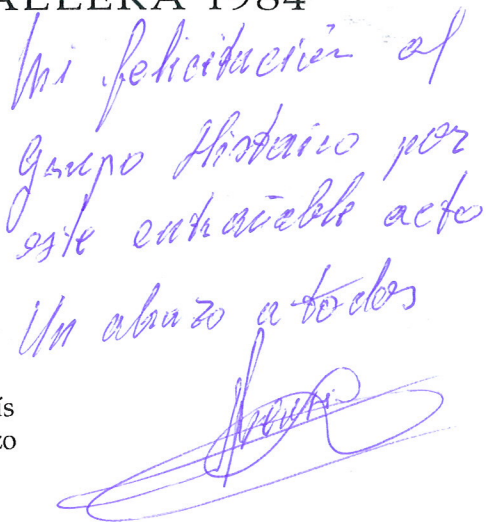 ALLERA 1984
Mi felicitación al
Grupo Histórico por
este entrañable acto
Un abrazo a todos
ís
zo